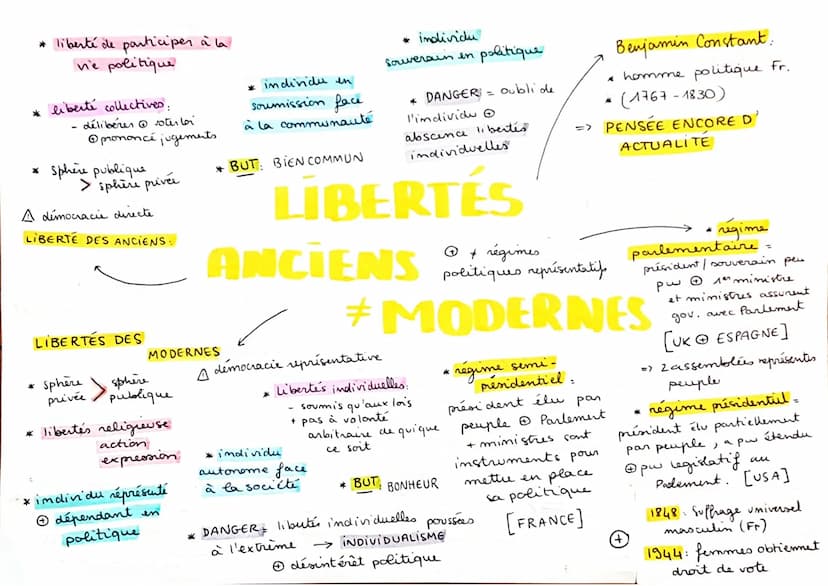 * liberté de participer à la
vie politique
* liberté collectives:
- délibérer ⊕ voter loi
⊕ prononcé jugements
* sphère publique
> sphère privée
⚠ démocracie directe
LIBERTÉ DES ANCIENS:
* individu en
soumission face
à la communauté
* BUT: BIEN COMMUN
* individu
souverain en politique
* DANGER = oubli de
l'individu ⊕
abscence libertés
individuelles
Benjamin Constant:
* homme politique Fr.
* (1767-1830)
=> PENSÉE ENCORE D'
ACTUALITÉ
LIBERTÉS
ANCIENS
≠ MODERNES
⊕ ≠ régimes
politiques représentatifs
* régime
parlementaire =
président/souverain peu
pw ⊕ 1er ministre
et ministres assurent
gov. avec Parlement
[UK ⊕ ESPAGNE]
=> 2 assemblées représentes
peuple
* régime présidentiel =
président élu partiellement
par peuple, a pw étendu
⊕ pw legislatif au
Parlement. [USA]
1848: Suffrage universel
masculin (Fr)
⊕
1944: femmes obtiennent
droit de vote
LIBERTÉS DES
MODERNES
* sphère privée > sphère publique
* libertés religieuse
action
expression
* individu réprésuté
⊕ dépendant en
politique
⚠ démocracie représentative
* Libertés individuelles:
- soumis qu'aux lois
+ pas à volonté
arbitraire de quique
ce soit
* individu
autonome face
à la société
* BUT: BONHEUR
* DANGER = libertés individuelles poussées
à l'extrême → INDIVIDUALISME
⊕ désintérêt politique
* régime semi-
présidentiel =
président élu par
peuple ⊕ Parlement
+ ministres sont
instruments pour
mettre en place
sa politique
[FRANCE]